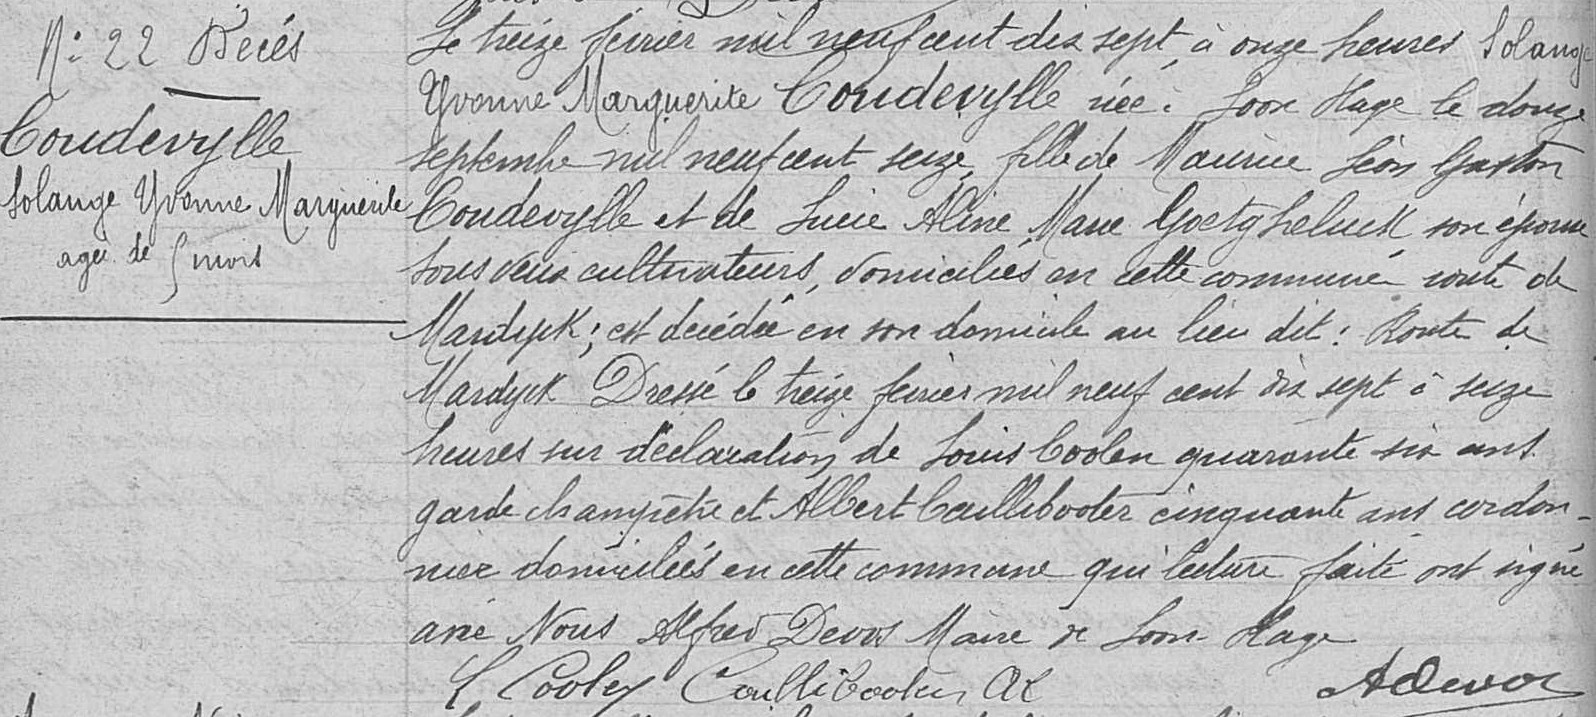 N: 22 Décés
Coudevylle
Solange Yvonne Marguerite
agée de 5 mois
Le treize fevrier mil neuf cent dix sept à onze heures Solange
Yvonne Marguerite Coudevylle née à Loon Plage le douze
septembre mil neuf cent seize, fille de Maurice Léon Gaston
Coudevylle et de Lucie Aline Marie Goetgheluck son épouse
tous deux cultivateurs, domiciliés en cette commune route de
Mardyck ; est décédée en son domicile au lieu dit : Route de
Mardyck Dressé le treize fevrier mil neuf cent dix sept à seize
heures sur déclaration de Louis Coolen quarante six ans
garde champêtre et Albert Caillibooter cinquante ans cordon-
nier domiciliés en cette commune qui lecture faite ont signé
avec Nous Alfred Devos Maire de Loon Plage
L Coolen Caillibooter Al
ADevos